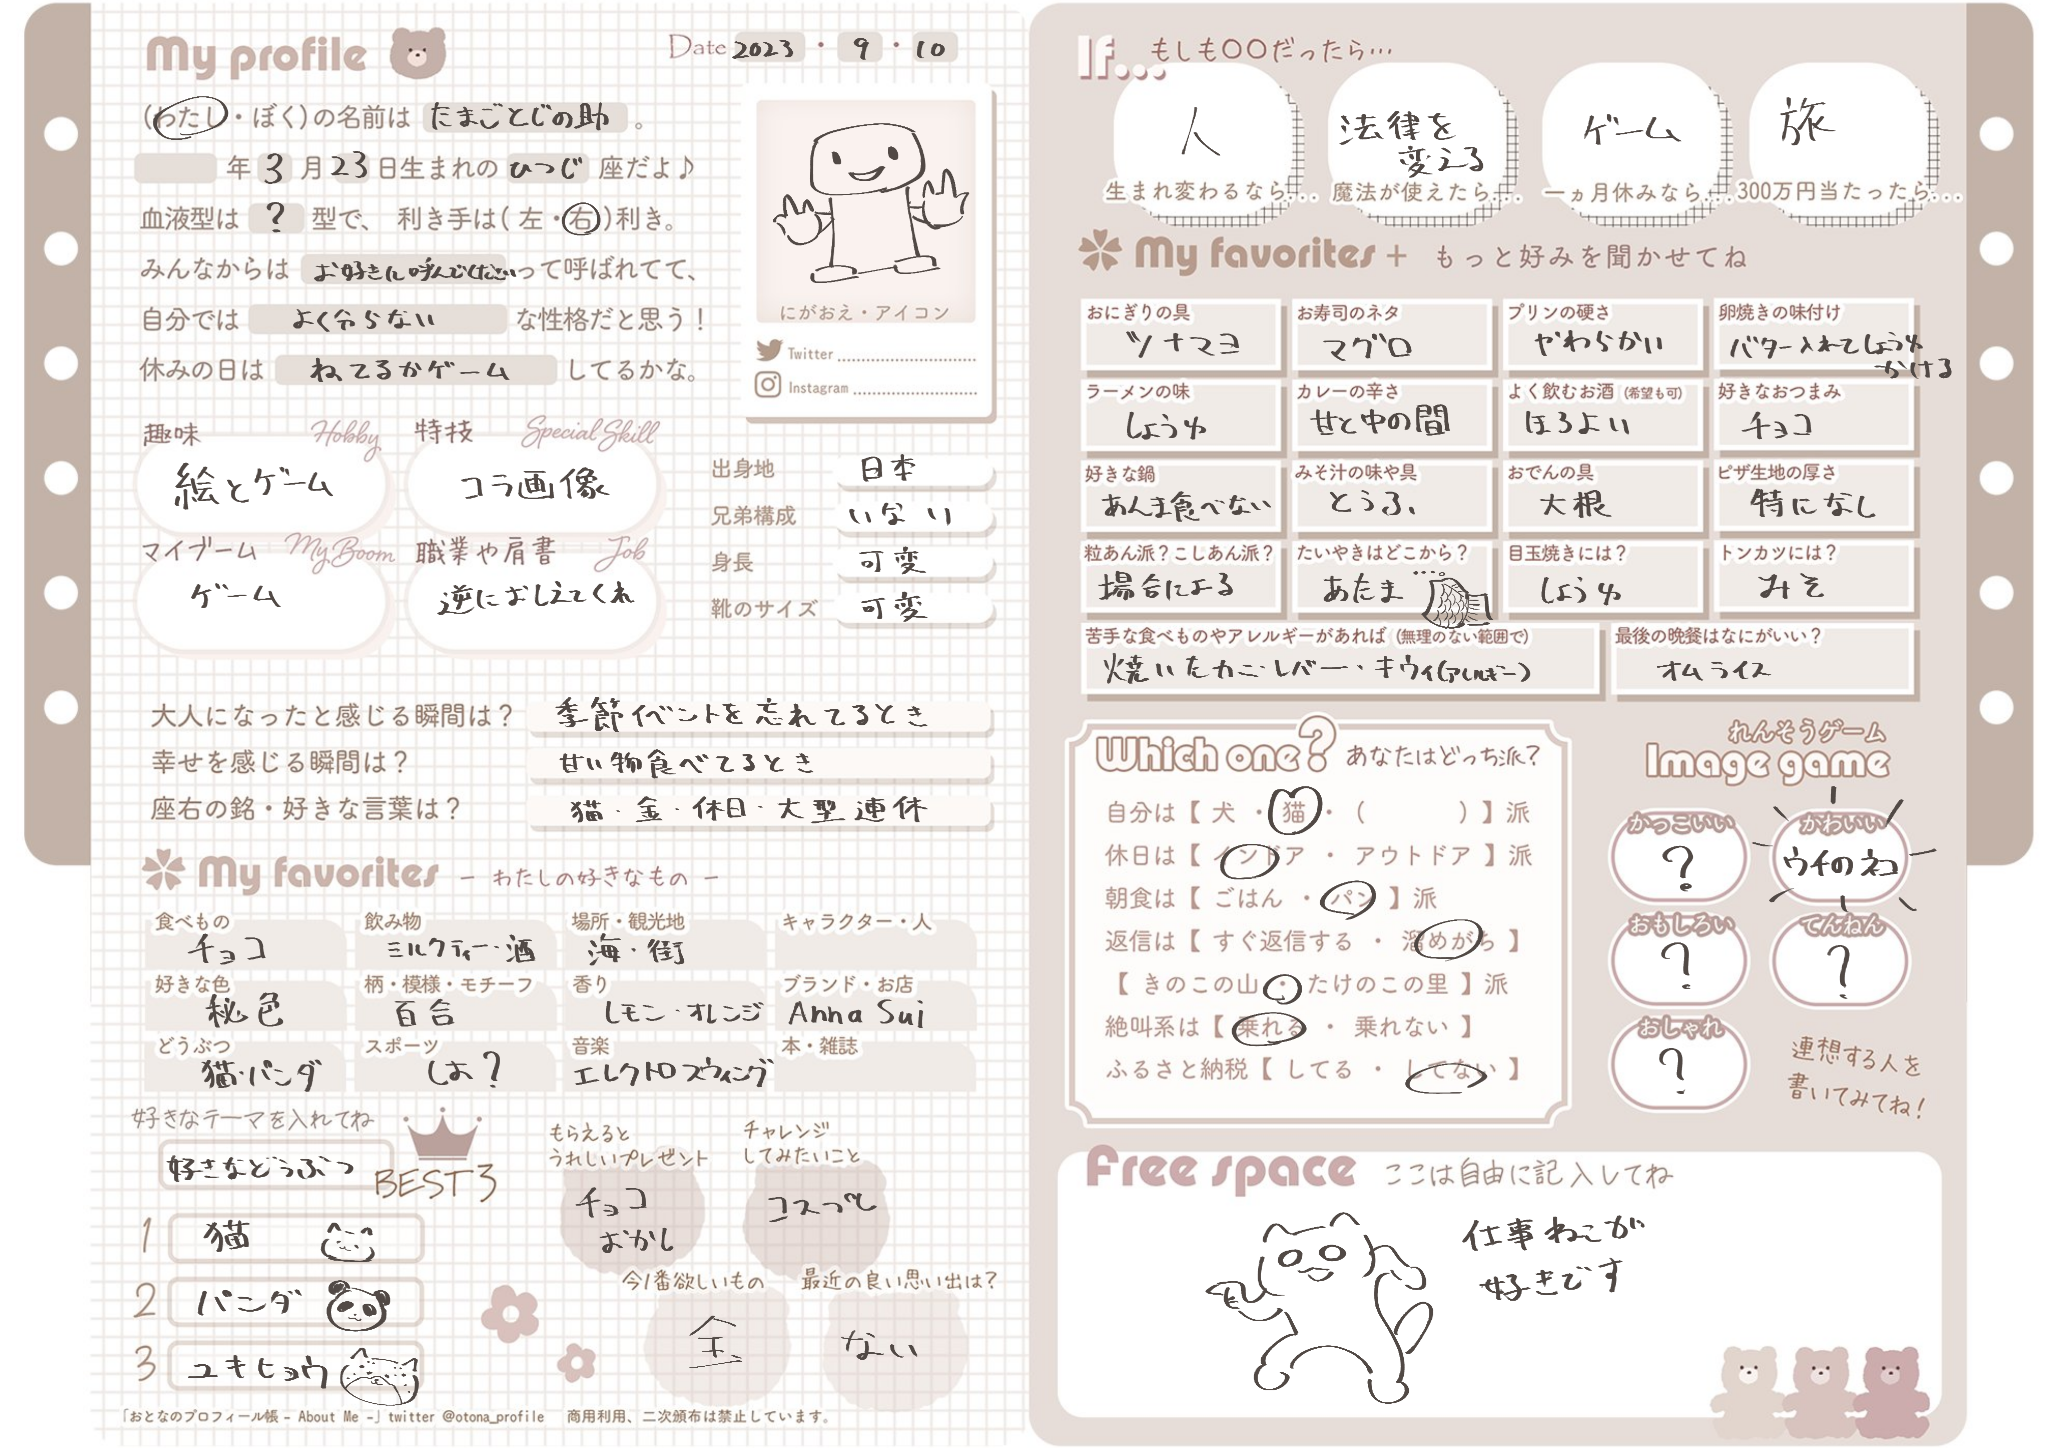 My profile
Date 2023・9・10
(わたし・ぼく)の名前は たまごとじの助 。
年 3 月 23 日生まれの ひつじ 座だよ♪
血液型は ? 型で、 利き手は( 左・右 )利き。
みんなからは お好きに呼んでくださいって呼ばれてて、
自分では よく分らない な性格だと思う!
休みの日は ねてるかゲーム してるかな。
にがおえ・アイコン
Twitter
Instagram
趣味 Hobby
絵とゲーム
特技 Special Skill
コラ画像
マイブーム My Boom
ゲーム
職業や肩書 Job
逆におしえてくれ
出身地 日本
兄弟構成 いない
身長 可変
靴のサイズ 可変
大人になったと感じる瞬間は? 季節イベントを忘れてるとき
幸せを感じる瞬間は? 甘い物食べてるとき
座右の銘・好きな言葉は? 猫・金・休日・大型連休
My favorites − わたしの好きなもの −
食べもの チョコ
飲み物 ミルクティー・酒
場所・観光地 海・街
キャラクター・人
好きな色 秘色
柄・模様・モチーフ 百合
香り レモン・オレンジ
ブランド・お店 Anna Sui
どうぶつ 猫・パンダ
スポーツ しお?
音楽 エレクトロスウィング
本・雑誌
好きなテーマを入れてね
好きなどうぶつ BEST3
1 猫
2 パンダ
3 ユキヒョウ
もらえると
うれしいプレゼント
チョコ
おかし
チャレンジ
してみたいこと
コスプレ
今1番欲しいもの
金
最近の良い思い出は?
ない
「おとなのプロフィール帳 - About Me -」twitter @otona_profile 商用利用、二次頒布は禁止しています。
If... もしも〇〇だったら…
人
生まれ変わるなら…
法律を
変える
魔法が使えたら…
ゲーム
一ヵ月休みなら…
旅
300万円当たったら…
My favorites + もっと好みを聞かせてね
おにぎりの具 ツナマヨ
お寿司のネタ マグロ
プリンの硬さ やわらかい
卵焼きの味付け バター入れてしょうゆ
かける
ラーメンの味 しょうゆ
カレーの辛さ 甘と中の間
よく飲むお酒 (希望も可) ほろよい
好きなおつまみ チョコ
好きな鍋 あんま食べない
みそ汁の味や具 とうふ
おでんの具 大根
ピザ生地の厚さ 特になし
粒あん派?こしあん派? 場合による
たいやきはどこから? あたま
目玉焼きには? しょうゆ
トンカツには? みそ
苦手な食べものやアレルギーがあれば (無理のない範囲で)
焼いたカニ・レバー・キウイ(アレルギー)
最後の晩餐はなにがいい?
オムライス
Which one? あなたはどっち派?
自分は【 犬 ・ 猫 ・ ( ) 】派
休日は【 インドア ・ アウトドア 】派
朝食は【 ごはん ・ パン 】派
返信は【 すぐ返信する ・ 溜めがち 】
【 きのこの山 ・ たけのこの里 】派
絶叫系は【 乗れる ・ 乗れない 】
ふるさと納税【 してる ・ してない 】
れんそうゲーム
Image game
かっこいい
?
かわいい
ウチのネコ
おもしろい
?
てんねん
?
おしゃれ
?
連想する人を
書いてみてね!
Free space ここは自由に記入してね
仕事ねこが
好きです